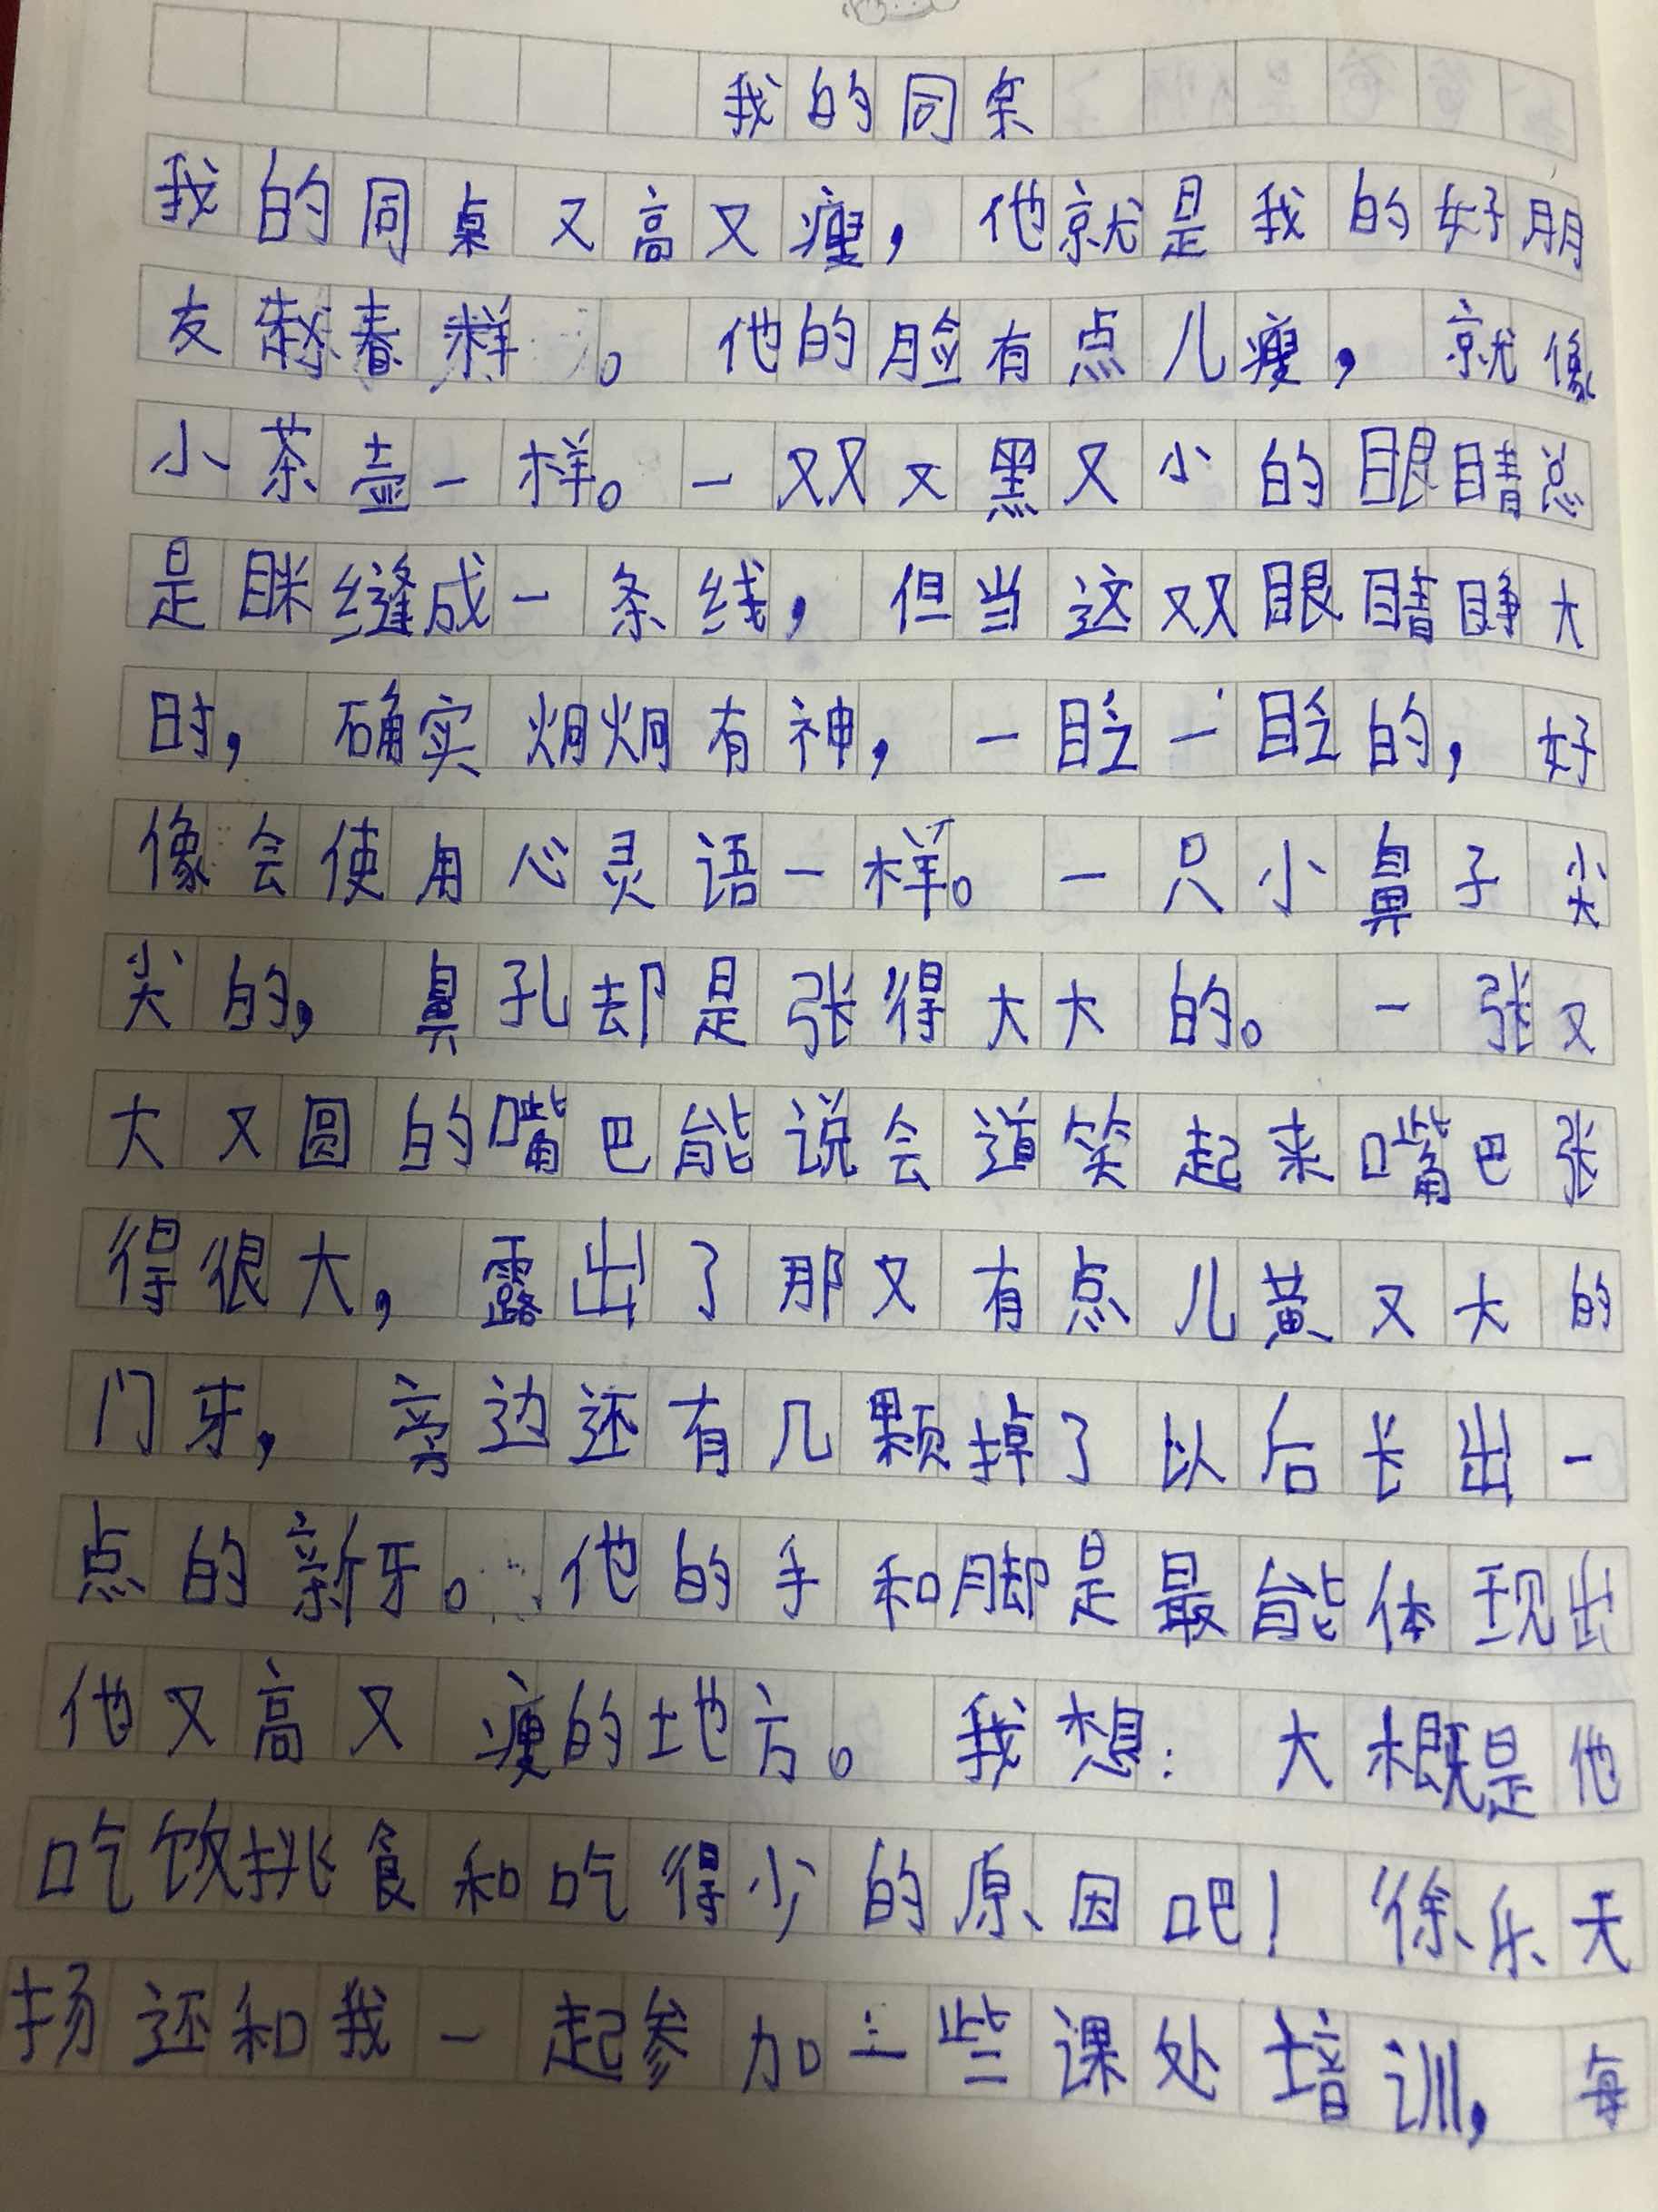 我的同桌
我的同桌又高又瘦，他就是我的好朋
友 春 。他的脸有点儿瘦，就像
小茶壶一样。一双又黑又小的眼睛总
是眯缝成一条线，但当这双眼睛睁大
时，确实炯炯有神，一眨一眨的，好
像会使用心灵语一样。一只小鼻子尖
尖的，鼻孔却是张得大大的。一张又
大又圆的嘴巴能说会道笑起来嘴巴张
得很大，露出了那又有点儿黄又大的
门牙，旁边还有几颗掉了以后长出一
点的新牙。他的手和脚是最能体现出
他又高又瘦的地方。我想：大概是他
吃饭挑食和吃得少的原因吧！徐乐天
扬还和我一起参加一些课处培训，每